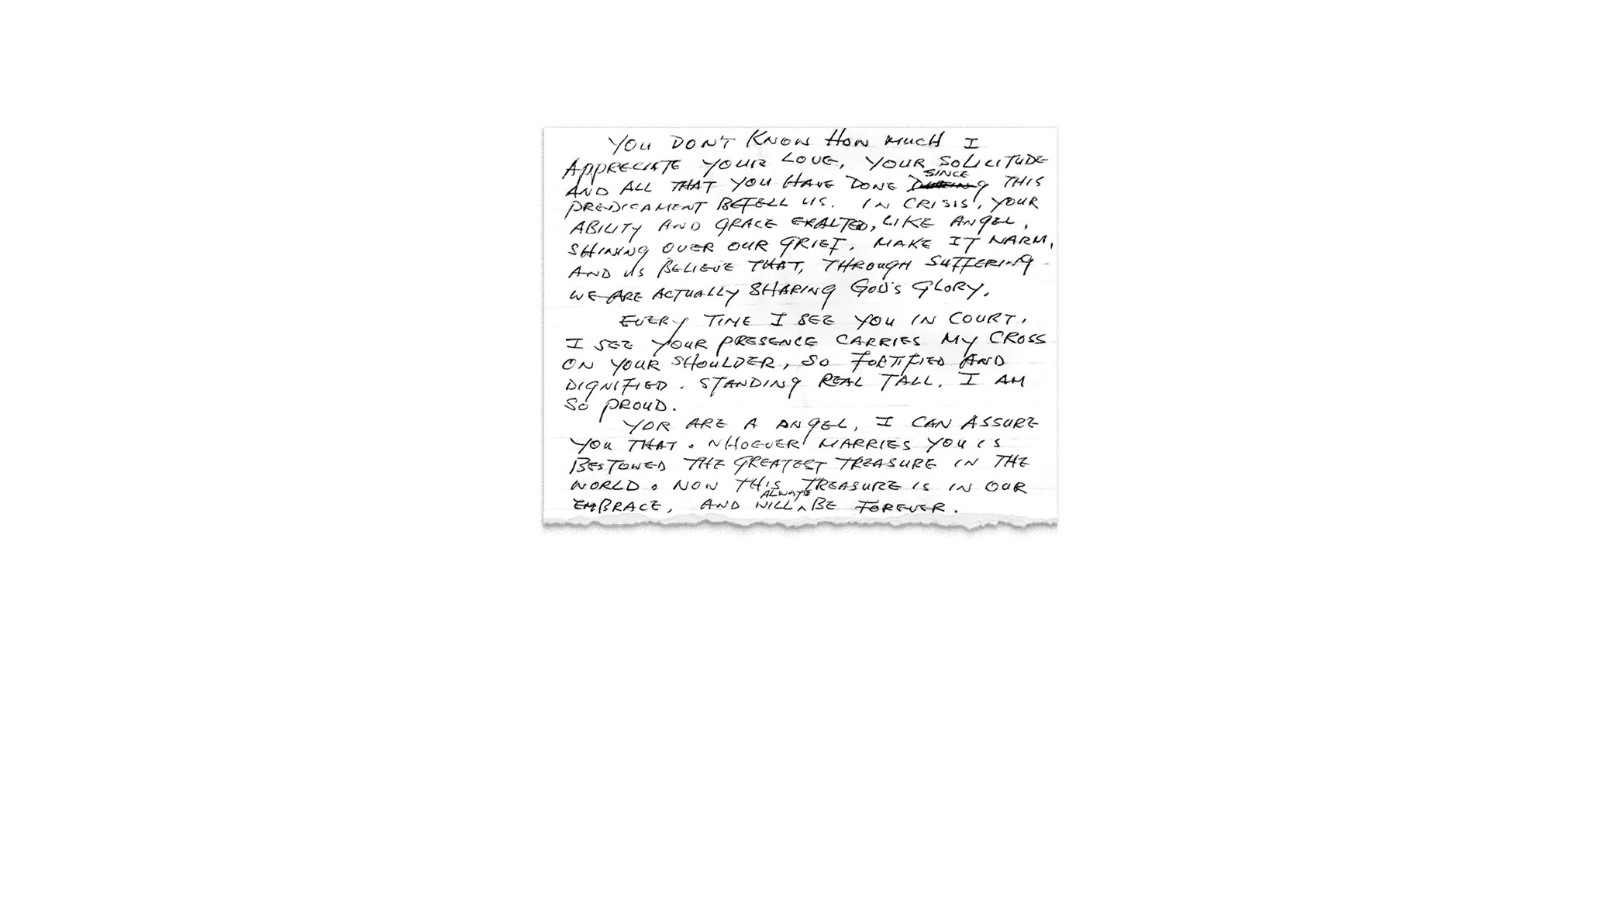 YOU DON'T KNOW HOW MUCH I
APPRECIATE YOUR LOVE, YOUR SOLICITUDE
AND ALL THAT YOU HAVE DONE SINCE THIS
PREDICAMENT BEFELL US. IN CRISIS, YOUR
ABILITY AND GRACE EXALTED, LIKE ANGEL,
SHINING OVER OUR GRIEF, MAKE IT WARM,
AND US BELIEVE THAT, THROUGH SUFFERING
WE ARE ACTUALLY SHARING GOD'S GLORY.
EVERY TIME I SEE YOU IN COURT,
I SEE YOUR PRESENCE CARRIES MY CROSS
ON YOUR SHOULDER, SO FORTIFIED AND
DIGNIFIED. STANDING REAL TALL. I AM
SO PROUD.
YOR ARE A ANGEL, I CAN ASSURE
YOU THAT. WHOEVER MARRIES YOU IS
BESTOWED THE GREATEST TREASURE IN THE
WORLD. NOW THIS TREASURE IS IN OUR
EMBRACE, AND WILL ALWAYS BE FOREVER.